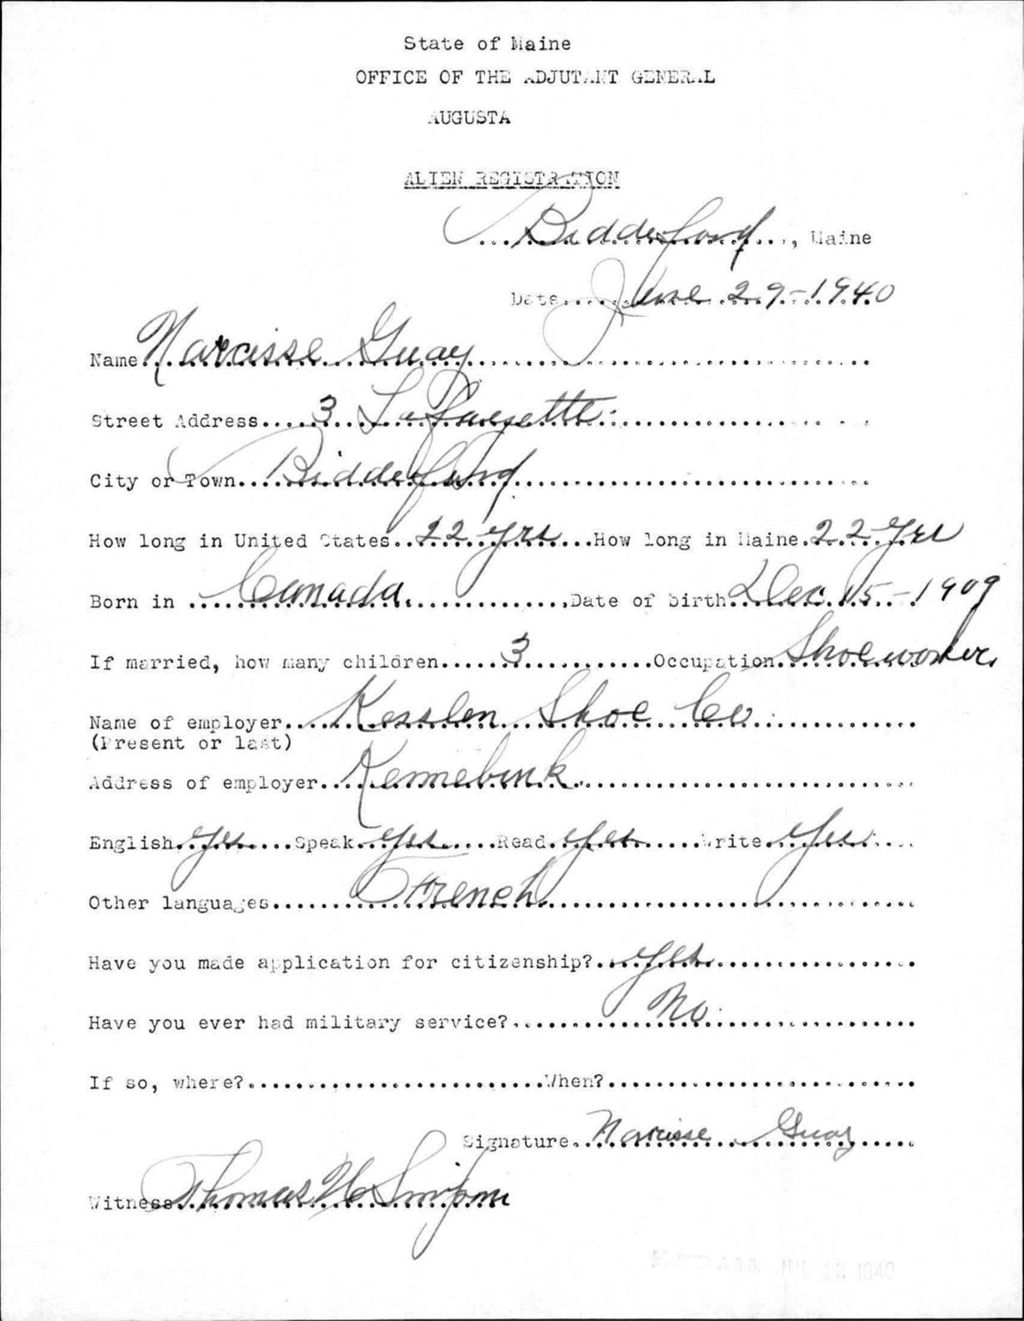 State of Maine
OFFICE OF THE ADJUTANT GENERAL
AUGUSTA
ALIEN REGISTRATION
Biddeford, Maine
Date June 29-1940
Name Narcisse Guay
Street Address 3 LaFayette
City or Town Biddeford
How long in United States 22 yrs How long in Maine 22 yrs
Born in Canada. Date of birth Dec 15-1909
If married, how many children 3 Occupation Shoe worker
Name of employer Kesslen Shoe Co
(Present or last)
Address of employer Kennebunk
English Yes Speak Yes Read Yes Write Yes
Other languages French
Have you made application for citizenship? Yes
Have you ever had military service? No
If so, where? When?
Signature Narcisse Guay
Witness Thomas
JUL 12 1940